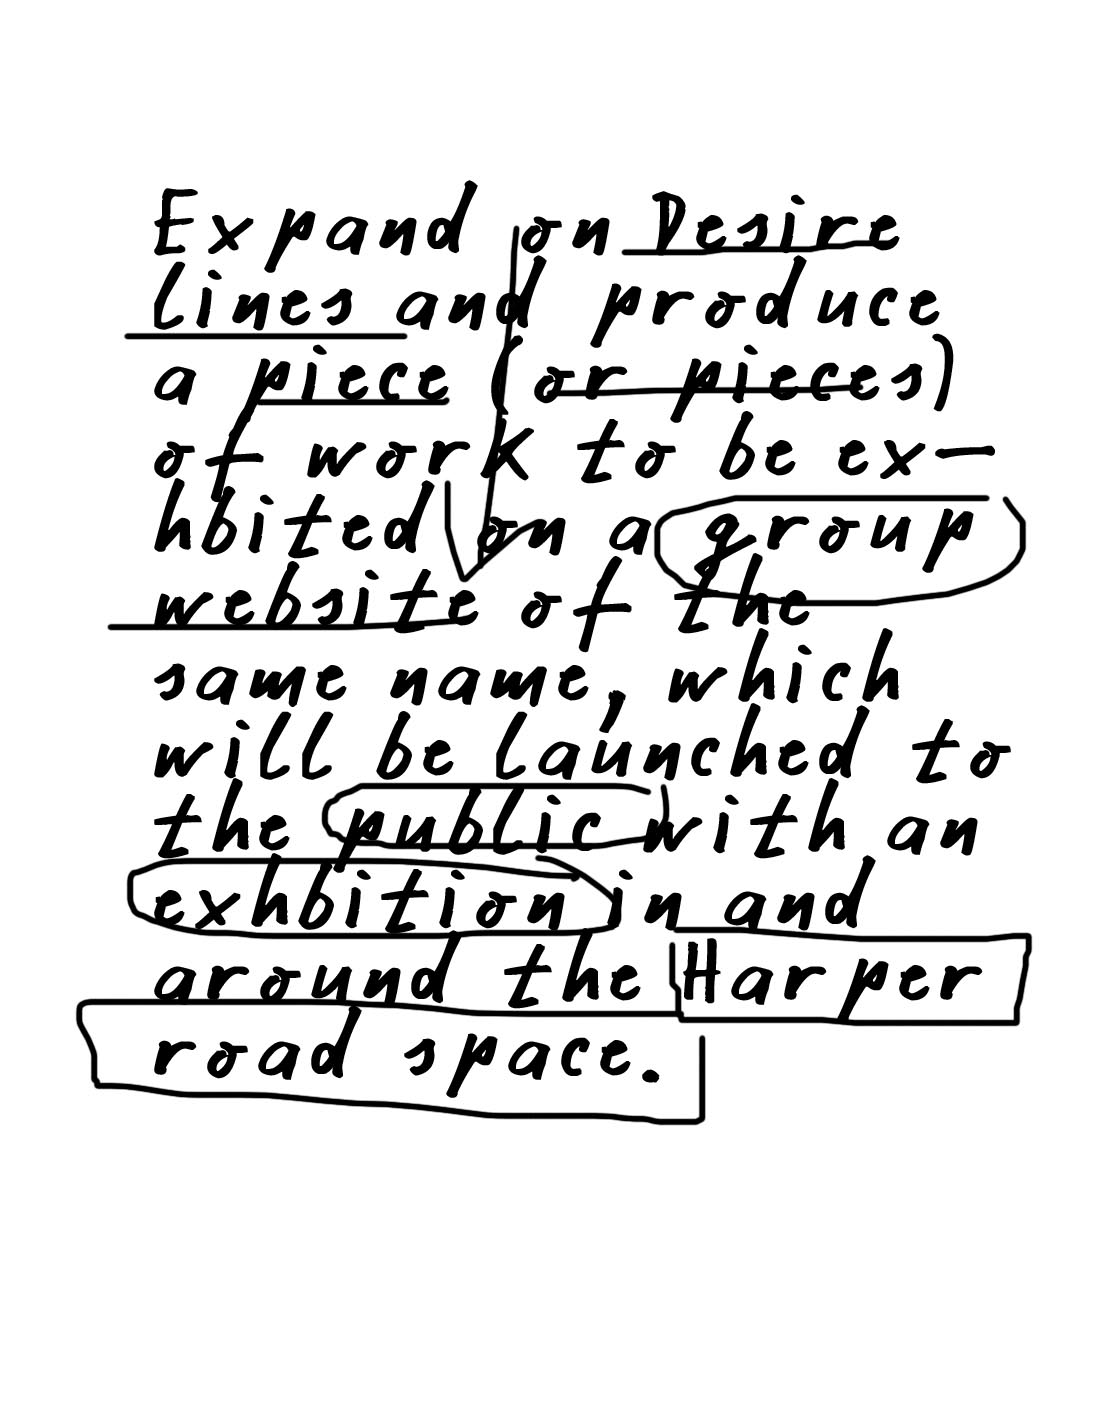 Expand on Desire
lines and produce
a piece (or pieces)
of work to be ex-
hbited on a group
website of the
same name, which
will be launched to
the public with an
exhbition in and
around the Harper
road space.